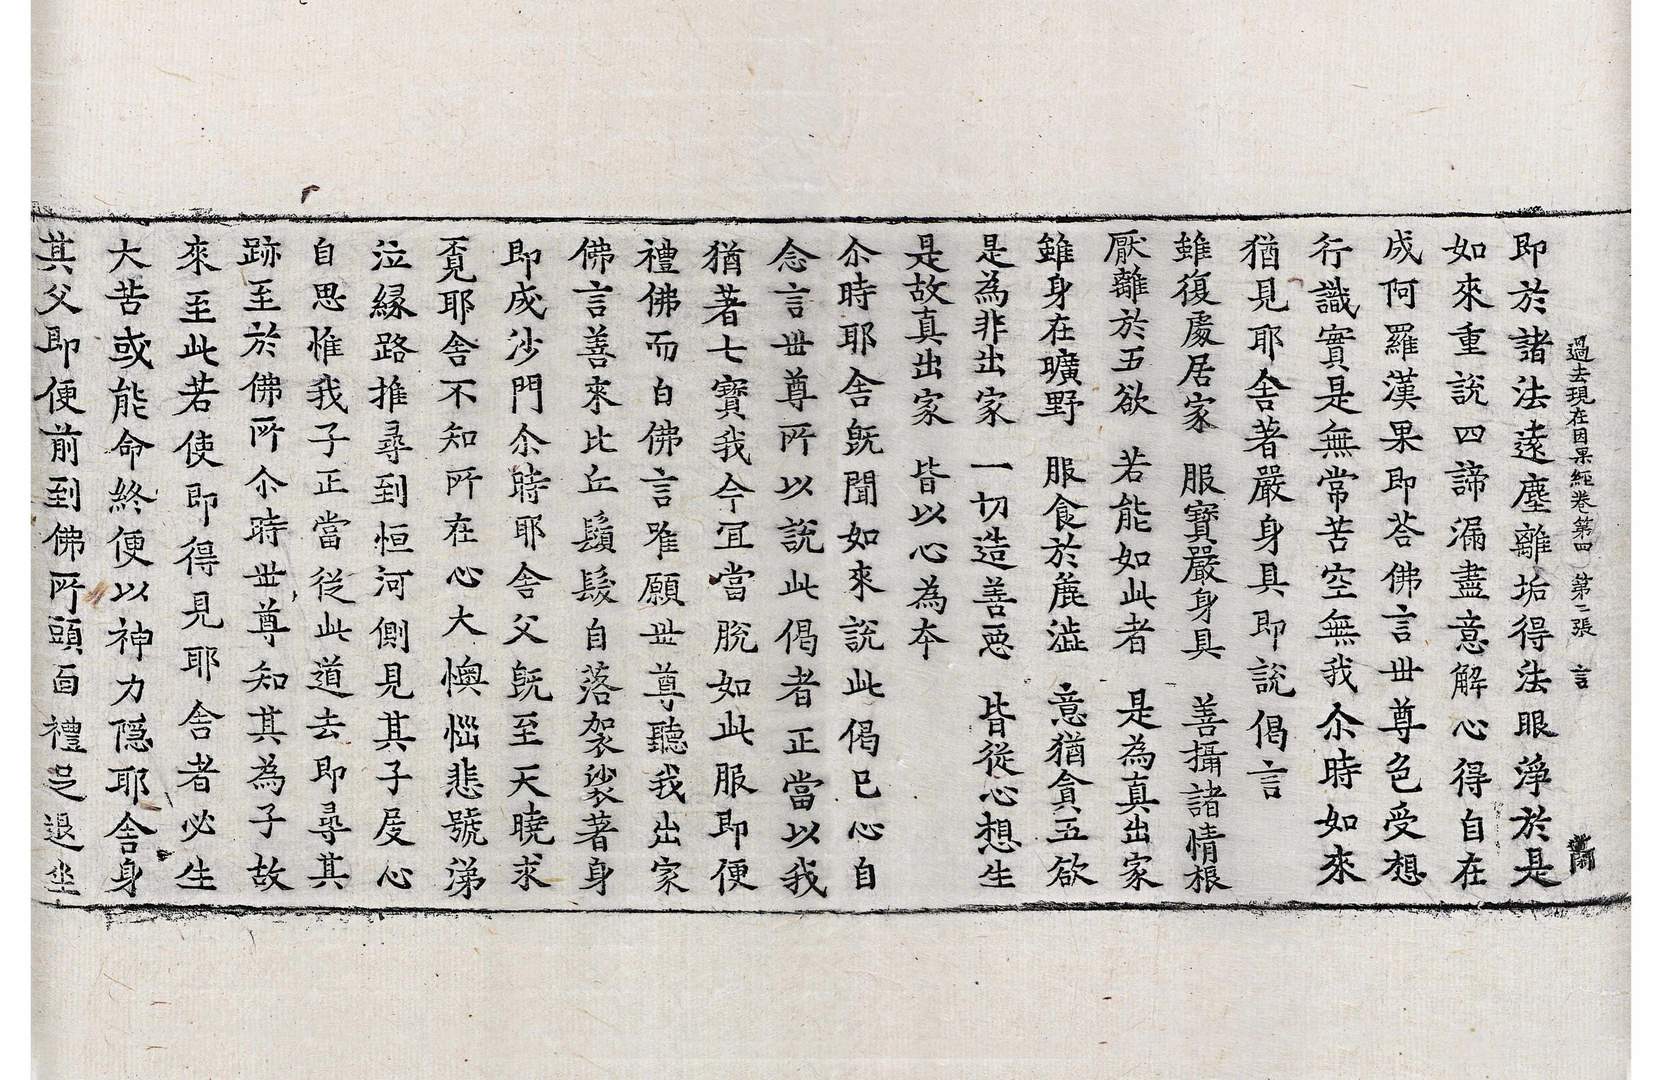 過去現在因果經卷第四 第二張 言
即於諸法遠塵離垢得法眼淨於是
如來重說四諦漏盡意解心得自在
成阿羅漢果即荅佛言丗尊色受想
行識實是無常苦空無我尒時如來
猶見耶舍著嚴身具即說偈言
雖復處居家 服寶嚴身具 善攝諸情根
厭離於五欲 若能如此者 是為真出家
雖身在曠野 服食於麁澁 意猶貪五欲
是為非出家 一切造善惡 皆從心想生
是故真出家 皆以心為本
尒時耶舍旣聞如來說此偈已心自
念言丗尊所以說此偈者正當以我
猶著七寶我今冝當脫如此服即便
禮佛而白佛言唯願丗尊聽我出家
佛言善來比丘鬚髮自落袈裟著身
即成沙門尒時耶舍父旣至天曉求
覓耶舍不知所在心大懊惱悲號涕
泣緣路推尋到恒河側見其子屐心
自思惟我子正當從此道去即尋其
跡至於佛所尒時丗尊知其為子故
來至此若使即得見耶舍者必生
大苦或能命終便以神力隱耶舍身
其父即便前到佛所頭面禮足退坐